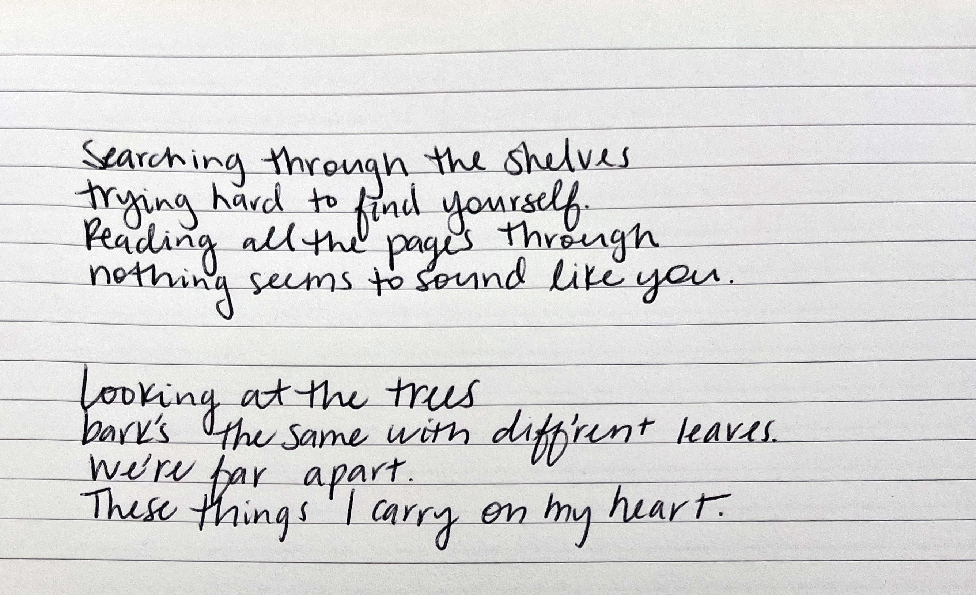 Searching through the shelves
trying hard to find yourself.
Reading all the pages through
nothing seems to sound like you.
Looking at the trees
bark's the same with diff'rent leaves.
We're far apart.
These things I carry on my heart.